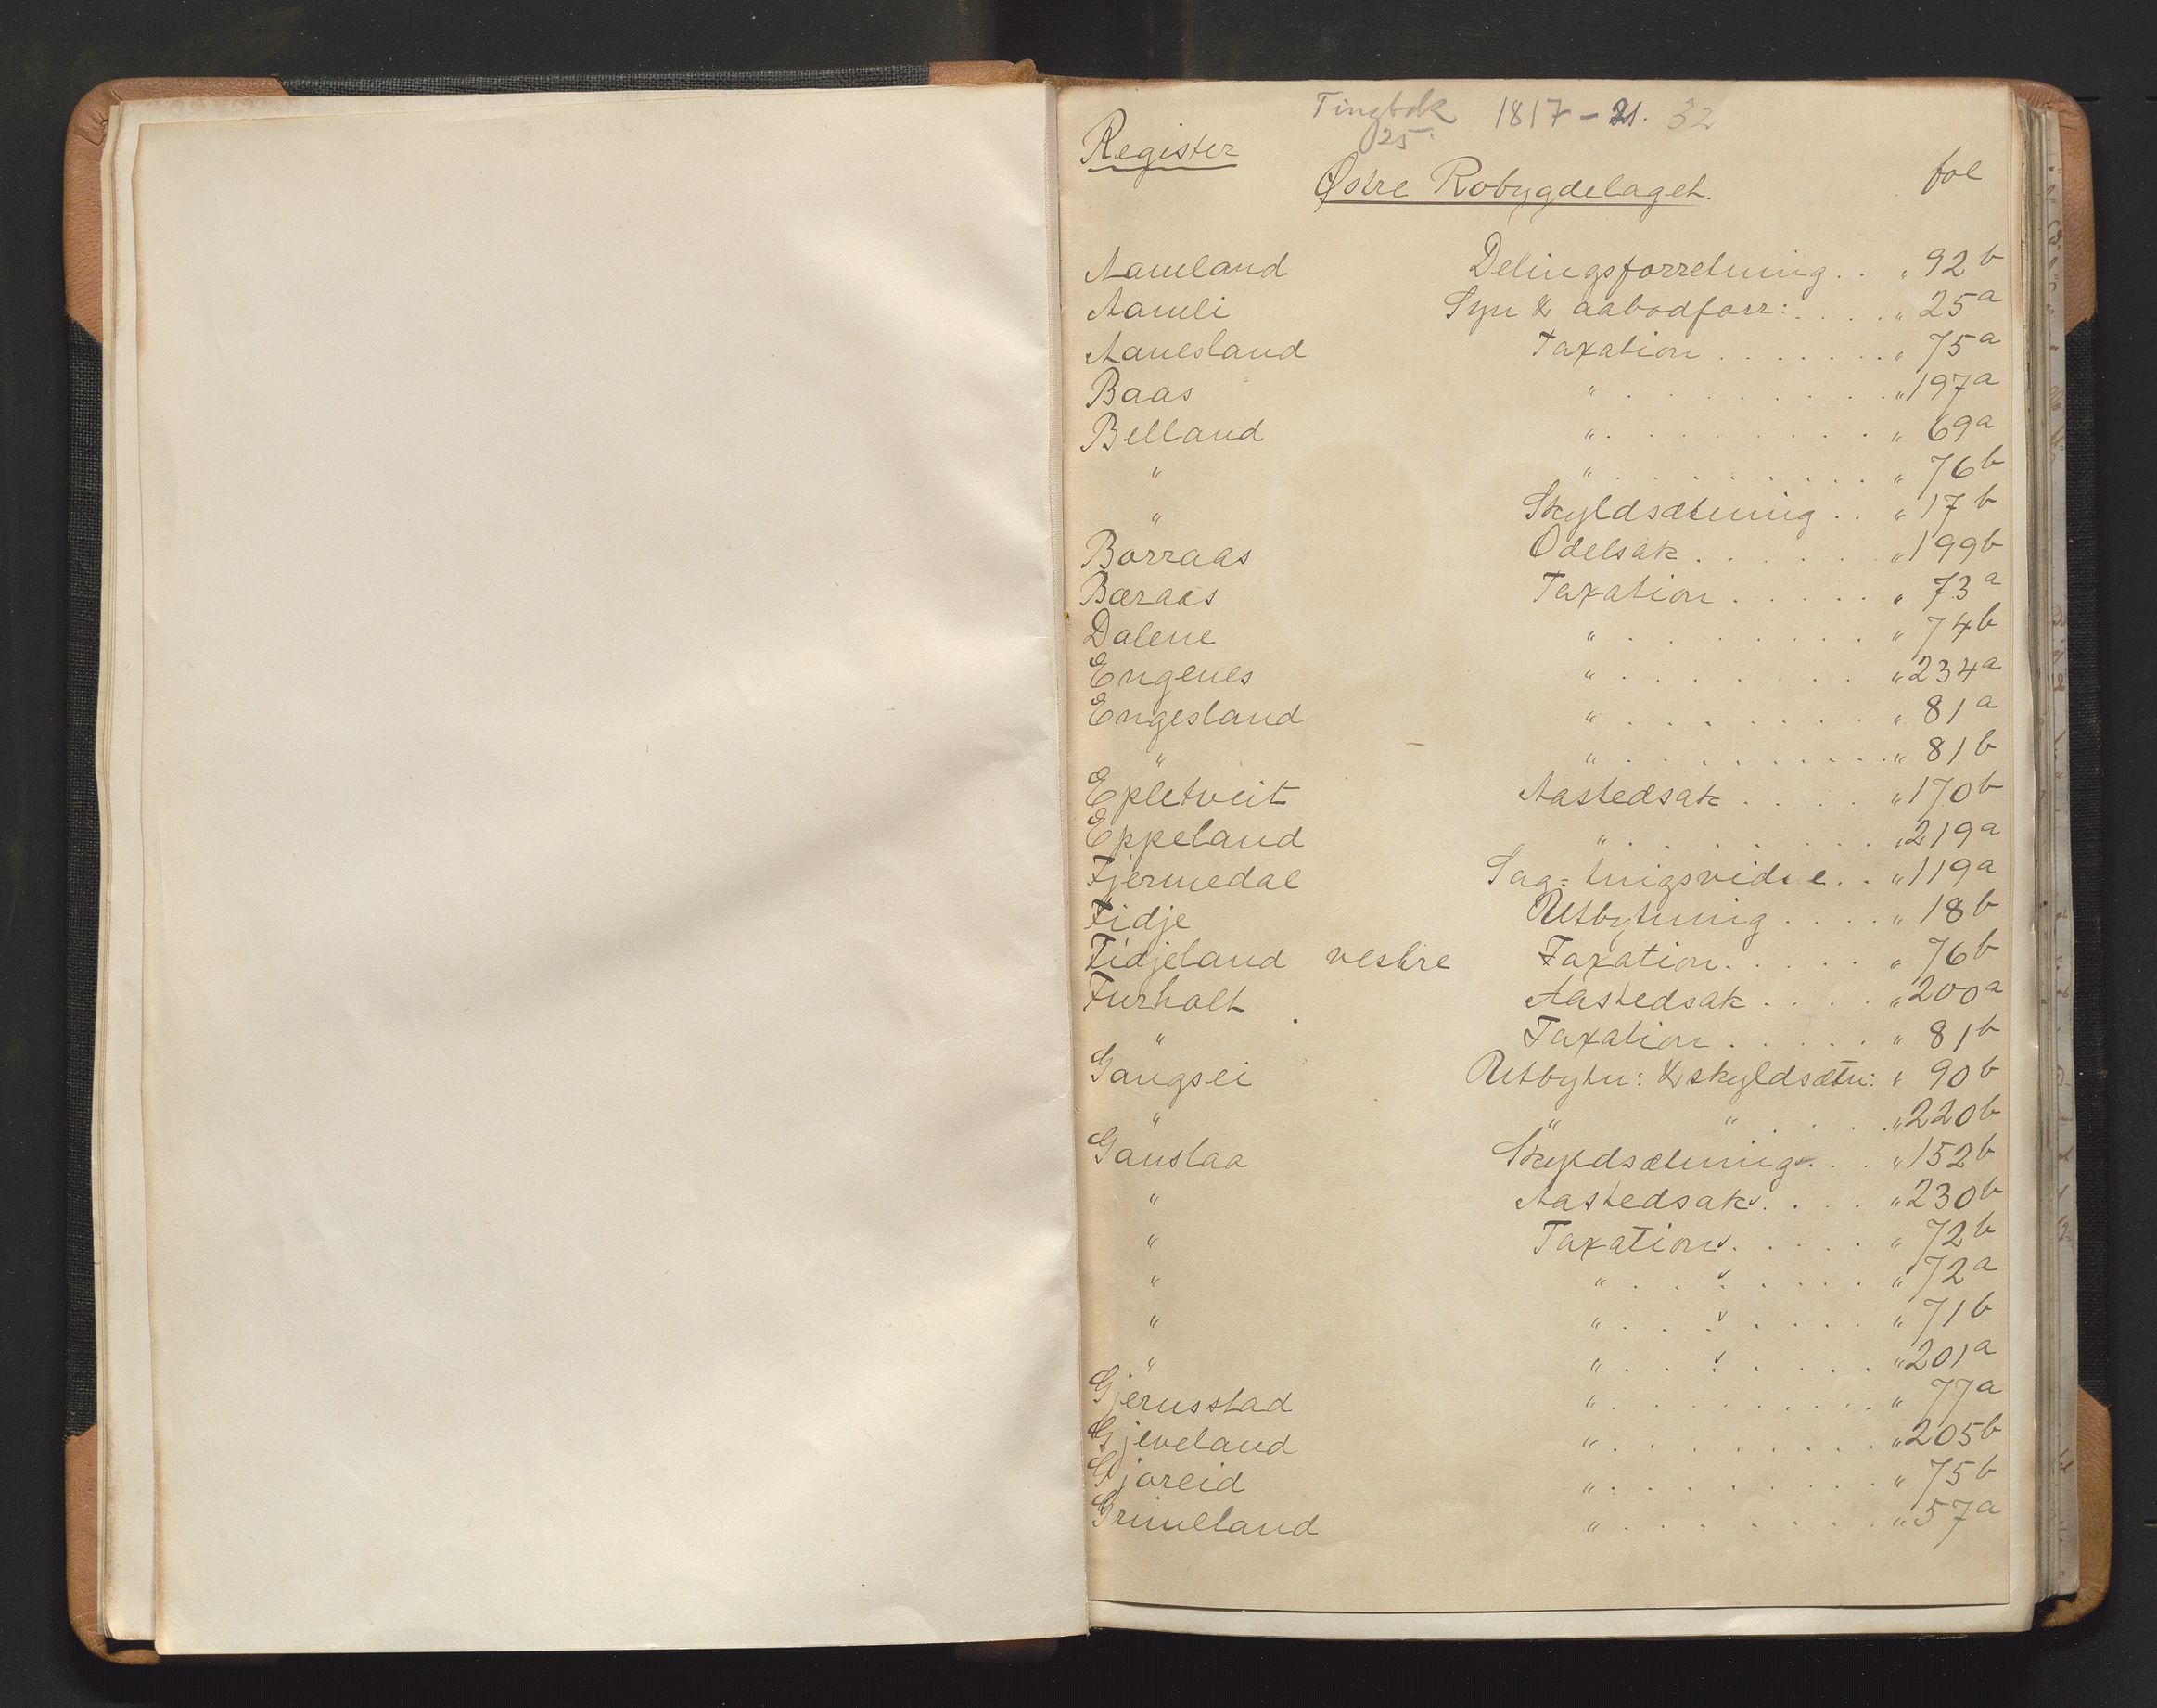 Tingbok 1817-21. 32
25.
Register
Østre Robygdelaget. fol
Aamland Delingsforretning . . " 92b
Aamli Syn & aabodforr: . . . . " 25a
Aanesland Taxation . . . . . . . " 75a
Baas " . . . . . . . . . " 197a
Belland " . . . . . . . . . " 69a
" " . . . . . . . . . " 76b
" Skyldsætning . . " 17b
Borraas Odelsak . . . . . . " 199b
Bæraas Taxation . . . . . " 73a
Dalene " . . . . . . . . " 74b
Engenes " . . . . . . . . " 234a
Engesland " . . . . . . . . " 81a
" " . . . . . . . . . . " 81b
Epletveit Aastedsak . . . . " 170b
Eppeland " . . . . . . . . . " 219a
Fjermedal Sag= tingsvidne . . " 119a
Fidje Utbytning . . . . " 18b
Fidjeland vestre Taxation . . . . . " 76b
Furholt Aastedsak . . . . " 200a
" Taxation . . . . . " 81b
Gangsei Utbytn: & skyldsætn: " 90b
" " " . . . . " 220b
Gauslaa Skyldsætning v . . . " 152b
" Aastedsak v . . . . " 230b
" Taxation v . . . . . " 72b
" " . . . v . . . . " 72a
" " . . . v . . . . " 71b
" " . . . v . . . . " 201a
Gjerusstad " . . . . . . . . . . " 77a
Gjeveland " . . . . . . . . . " 205b
Gjoreid " . . . . . . . . . " 75b
Grimeland " . . . . . . . . " 57a